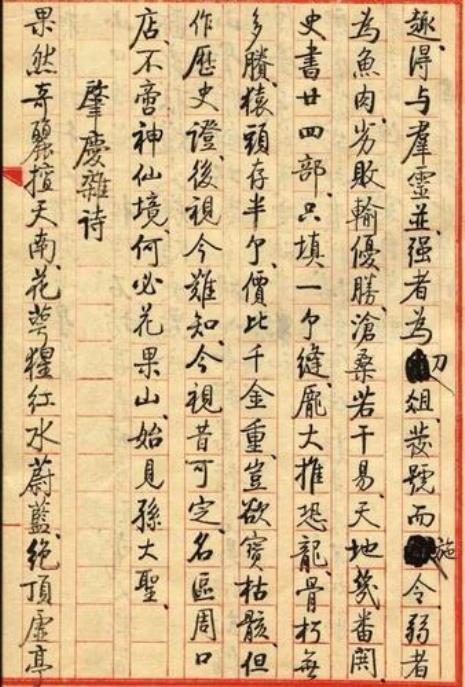 趣、得与羣霊並、强者為刀俎、發號而施令、弱者
為魚肉、劣敗輸優勝、滄桑若干易、天地幾番閧、
史書廿四部、只填一个縫、龐大推恐龍、骨朽無
多賸、猿頭存半个、價比千金重、豈欲寶枯骸、但
作歷史證、後視今難知、今視昔可定、名區周口
店、不啻神仙境、何必花果山、始見孫大聖、
肇慶雜诗
果然奇麗擅天南、花萼猩红水蔚藍、絶頂虛亭